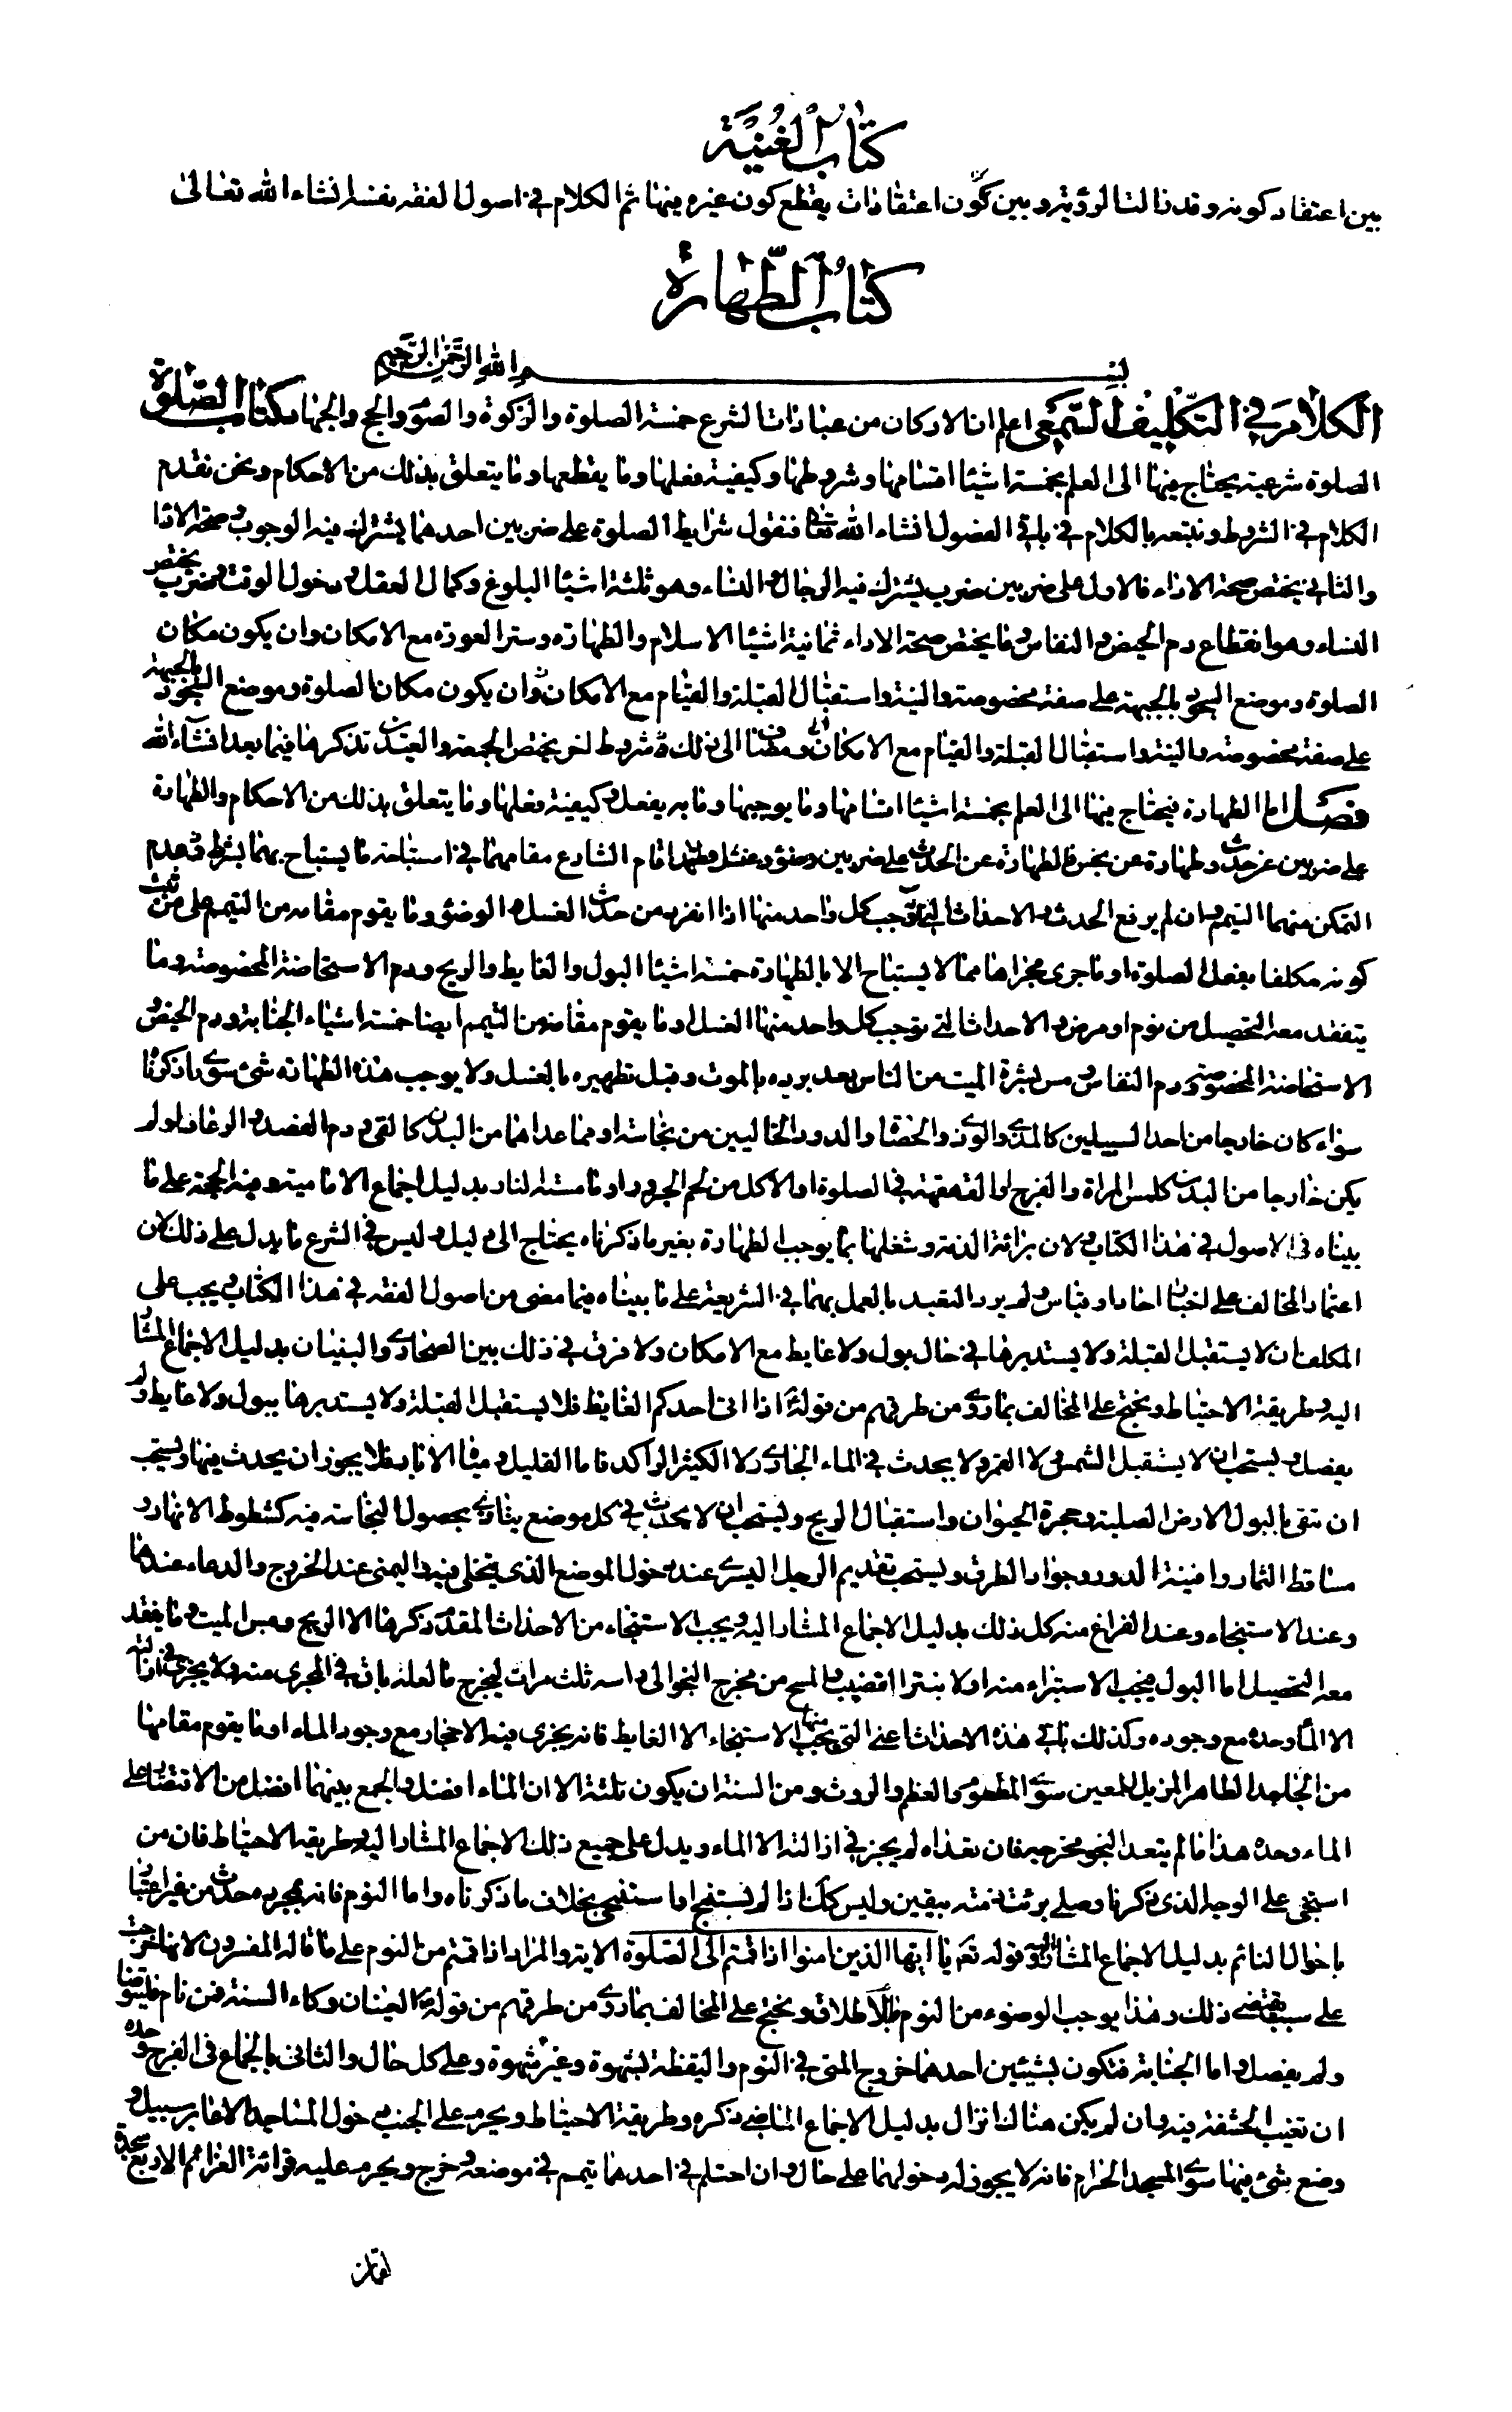 كتاب الغنية
بين اعتقاد كونه وقدنا لتالرؤيته وبين كون اعتقادات يقطع كون غيره منها ثم الكلام في اصول الفقه بفسر انشاء الله تعالى
كتاب الطهارة
بسم الله الرحمن الرحيم
الكلام في التكليف السمعي اعلم ان الاركان من عبادات الشرع خمسة الصلوة والزكوة والصوم والحج والجهاد كتاب الصلوة
الصلوة شرعية يحتاج فيها الى العلم بخمسة اشياء اقسامها وشروطها وكيفية فعلها وما يقطعها وما يتعلق بذلك من الاحكام ونحن نقدم
الكلام في الشروط ونتبعه بالكلام في باقي الفصول انشاء الله تعالى فنقول شرايط الصلوة على ضربين احدهما يشترك فيه الوجوب وصحة الاداء
والثاني يختص صحة الاداء فالاول على ضربين ضرب يشترك فيه الرجال والنساء وهو ثلثة اشياء البلوغ وكمال العقل ودخول الوقت وضرب يختص
النساء وهو انقطاع دم الحيض والنفاس وما يختص صحة الاداء ثمانية اشياء الاسلام والطهارة وستر العورة مع الامكان وان يكون مكان
الصلوة وموضع السجود بالجبهة على صفة مخصوصة والنية واستقبال القبلة والقيام مع الامكان وان يكون مكان الصلوة وموضع السجود بالجبهة
على صفة مخصوصة والنية واستقبال القبلة والقيام مع الامكان الى ذلك شروط اخر يختص الجمعة والعيدين نذكرها فيما بعد انشاء الله
فصل اما الطهارة فيحتاج فيها الى العلم بخمسة اشياء اقسامها وما يوجبها وما به يفعل وكيفية فعلها وما يتعلق بذلك من الاحكام والطهارة
على ضربين عن حدث وطهارة عن نجس فالطهارة عن الحدث على ضربين وضوء وغسل وقد اقام الشارع مقامهما في استباحة ما يستباح بهما بشرط عدم
التمكن منهما التيمم وان لم يرفع الحدث والاحداث التي توجب كل واحد منها اذا انفرد من حدث الغسل الوضوء وما يقوم مقامه من التيمم على من ثبت
كونه مكلفا بفعل الصلوة او ما جرى مجراها مما لا يستباح الا بالطهارة خمسة اشياء البول والغايط والريح ودم الاستحاضة المخصوصة وما
يتفقد معه التحصيل من نوم او مرض والاحداث التي توجب كل واحد منها الغسل او ما يقوم مقامه من التيمم ايضا خمسة اشياء الجنابة ودم الحيض
الاستحاضة المخصوصة ودم النفاس ومس بشرة الميت من الناس بعد برده بالموت وقبل تطهيره بالغسل ولا يوجب هذه الطهارة شئ سوى ما ذكرناه
سواء كان خارجا من احد السبيلين كالمذي والوذي والحصاة والدود الخاليين من نجاسة او مما عداهما من البدن كالقئ ودم الفصد والرعاف او لم
يكن خارجا من البدن كلمس المراة والفرج او القهقهة في الصلوة او الاكل من لحم الجزور او ما مسته النار بدليل اجماع الامامية وفيه الحجة على ما
بيناه في الاصول في هذا الكتاب ولان برائة الذمة وشغلها بما يوجب الطهارة بغير ما ذكرناه يحتاج الى دليل وليس في الشرع ما يدل على ذلك لان
اعتماد المخالف على اخبار احاد او قياس ولم يرد التعبد بالعمل بهما في الشريعة على ما بيناه فيما مضى من اصول الفقه في هذا الكتاب ويجب على
المكلف ان لا يستقبل القبلة ولا يستدبرها في حال بول ولا غايط مع الامكان ولا فرق في ذلك بين الصحاري والبنيان بدليل الاجماع المشار
اليه وطريقة الاحتياط ونحتج على المخالف بما روي من طرقهم من قوله اذا اتى احدكم الغايط فلا يستقبل القبلة ولا يستدبرها ببول ولا غايط ولم
يفصل ويستحب ان لا يستقبل الشمس ولا القمر ولا يحدث في الماء الجاري ولا الكثير الراكد فاما القليل ومياه الابار فلا يجوز ان يحدث فيها ويستحب
ان تتقى بالبول الارض الصلبة وجحرة الحيوان واستقبال الريح ويستحب ان لا يحدث في كل موضع يتاذى بحصول النجاسة فيه كشطوط الانهار و
مساقط الثمار وافنية الدور وجواد الطرق ويستحب تقديم الرجل اليسرى عند دخول الموضع الذي يتخلى فيه واليمنى عند الخروج والدعاء عندهما
وعند الاستنجاء وعند الفراغ منه كل ذلك بدليل الاجماع المشار اليه ويجب الاستنجاء من الاحداث المقدم ذكرها الا الريح ومس الميت وما يفقد
معه التحصيل اما البول فيجب الاستبراء منه اولا بنتر القضيب والمسح من مخرج النجو الى راسه ثلث مرات ليخرج ما لعله باق في المجرى منه ولا يجزي في ازالته
الا الماء وحده مع وجوده وكذلك باقي هذه الاحداث اعني التي يجب منها الاستنجاء الا الغايط فانه يجزي فيه الاحجار مع وجود الماء او ما يقوم مقامها
من الجامد الطاهر المزيل للعين سوى المطعوم والعظم والروث ومن السنة ان يكون ثلثة الا ان الماء افضل والجمع بينهما افضل من الاقتصار على
الماء وحده هذا ما لم يتعد النجو مخرجه فان تعداه لم يجز في ازالته الا الماء ويدل على جميع ذلك الاجماع المشار اليه وطريقة الاحتياط فان من
استنجى على الوجه الذي ذكرنا وصلى برئت ذمته بيقين وليس كذلك اذا لم يستنج او استنجى بخلاف ما ذكرناه واما النوم فانه بمجرده حدث من غير اعتبار
باحوال النائم بدليل الاجماع المشار اليه وقوله تعالى يا ايها الذين امنوا اذا قمتم الى الصلوة الاية والمراد اذا قمتم من النوم على ما قاله المفسرون لانها خرجت
على سبب يقتضي ذلك وهذا يوجب الوضوء من النوم بالاطلاق ونحتج على المخالف بما روي من طرقهم من قوله العينان وكاء السنة فمن نام فليتوضا
ولم يفصل واما الجنابة فتكون بشيئين احدهما خروج المني في النوم واليقظة بشهوة وغير شهوة وعلى كل حال والثاني بالجماع في الفرج وحده
ان تغيب الحشفة فيه وان لم يكن هناك انزال بدليل الاجماع الماضي ذكره وطريقة الاحتياط ويحرم على الجنب دخول المساجد الا عابر سبيل و
وضع شئ فيها سوى المسجد الحرام فانه لا يجوز له دخولهما على حال وان احتلم في احدهما تيمم في موضعه وخرج ويحرم عليه قرائة العزائم الاربع سجدة
لقمان